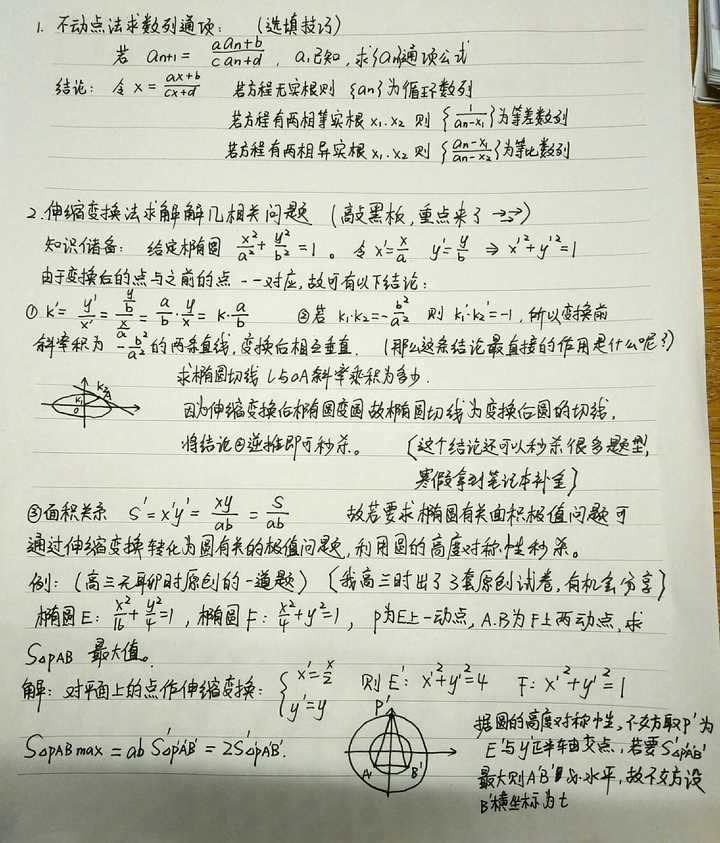 1. 不动点法求数列通项: (选填技巧)
若 aₙ₊₁ = (a aₙ+b)/(c aₙ+d) , a₁已知, 求{aₙ}通项公式
结论: 令 x = (ax+b)/(cx+d) 若方程无实根则 {aₙ}为循环数列
若方程有两相等实根 x₁.x₂ 则 {1/(aₙ-x₁)}为等差数列
若方程有两相异实根 x₁.x₂ 则 {(aₙ-x₁)/(aₙ-x₂)}为等比数列
2.伸缩变换法求解解几相关问题 (敲黑板,重点来了→→)
知识储备: 给定椭圆 x²/a²+y²/b²=1 。 令 x'=x/a y'=y/b ⇒ x'²+y'²=1
由于变换后的点与之前的点一一对应,故可有以下结论:
① k'=y'/x'=(y/b)/(x/a)=a/b·y/x=k·a/b ②若 k₁·k₂=-b²/a² 则 k₁'·k₂'=-1, 所以变换前
斜率积为 -b²/a² 的两条直线,变换后相互垂直. (那么这条结论最直接的作用是什么呢?)
k₂ A k₁ O 求椭圆切线 l 与OA斜率乘积为多少.
因为伸缩变换后椭圆变圆故椭圆切线为变换后圆的切线,
将结论②逆推即可秒杀。 (这个结论还可以秒杀很多题型,
寒假拿到笔记本补全)
③面积关系 S'=x'y'=xy/ab=S/ab 故若要求椭圆有关面积极值问题可
通过伸缩变换转化为圆有关的极值问题,利用圆的高度对称性秒杀。
例: (高三元旦时原创的一道题) (我高三时出了3套原创试卷,有机会分享)
椭圆E: x²/16+y²/4=1 , 椭圆F: x²/4+y²=1 , P为E上一动点, A.B为F上两动点,求
S△PAB 最大值。
解: 对平面上的点作伸缩变换: { x'=x/2 y'=y 则 E': x'²+y'²=4 F: x'²+y'²=1
P' A' B' 据圆的高度对称性,不妨取P'为
E'与y正半轴交点,若要S'△P'A'B'
S△PAB max = ab S'△P'A'B' = 2S'△P'A'B'.
最大则A'B'必水平,故不妨设
B'横坐标为t